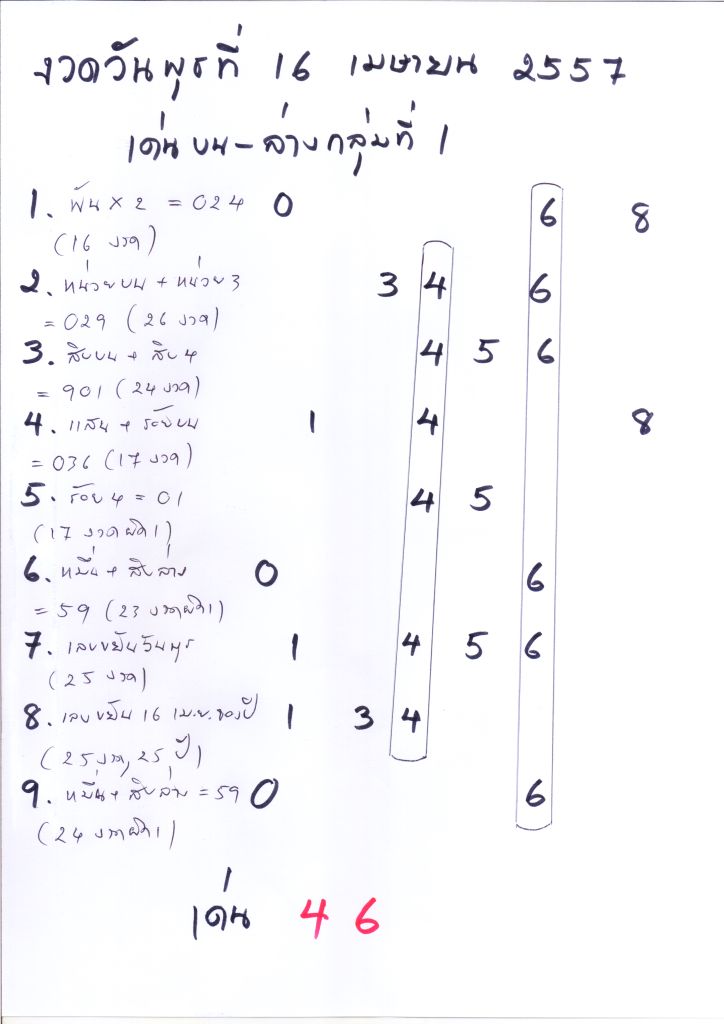 งวดวันพุธที่ 16 เมษายน 2557
เด่นบน-ล่างกลุ่มที่ 1
1. พัน x 2 = 024 0 6 8
(16 งวด)
2. หน่วยบน + หน่วย 3 3 4 6
= 029 (26 งวด)
3. สิบบน + สิบ 4 4 5 6
= 901 (24 งวด)
4. แสน + ร้อยบน 1 4 8
= 036 (17 งวด)
5. ร้อย 4 = 01 4 5
(17 งวดผิด 1)
6. หมื่น + สิบล่าง 0 6
= 59 (23 งวดผิด 1)
7. เลขขยันวันพุธ 1 4 5 6
(25 งวด)
8. เลขขยัน 16 เม.ย. ของปี 1 3 4
(25 งวด, 25 ปี)
9. หมื่น + สิบล่าง = 59 0 6
(24 งวดผิด 1)
เด่น 4 6